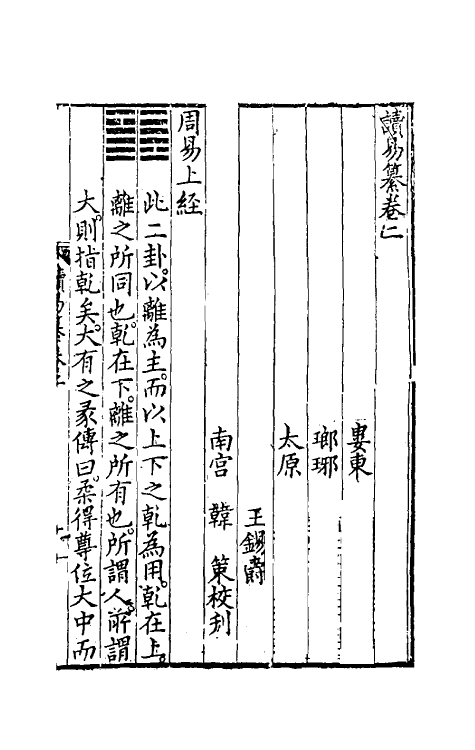 讀易纂卷二
婁東
瑯琊
太原
王錫爵
南宫 韓 策校刋
周易上經
此二卦以離為主而以上下之乾為用乾在上
離之所同也乾在下離之所有也所謂人所謂
大則指乾矣大有之彖傳曰柔得尊位大中而
讀易纂卷二